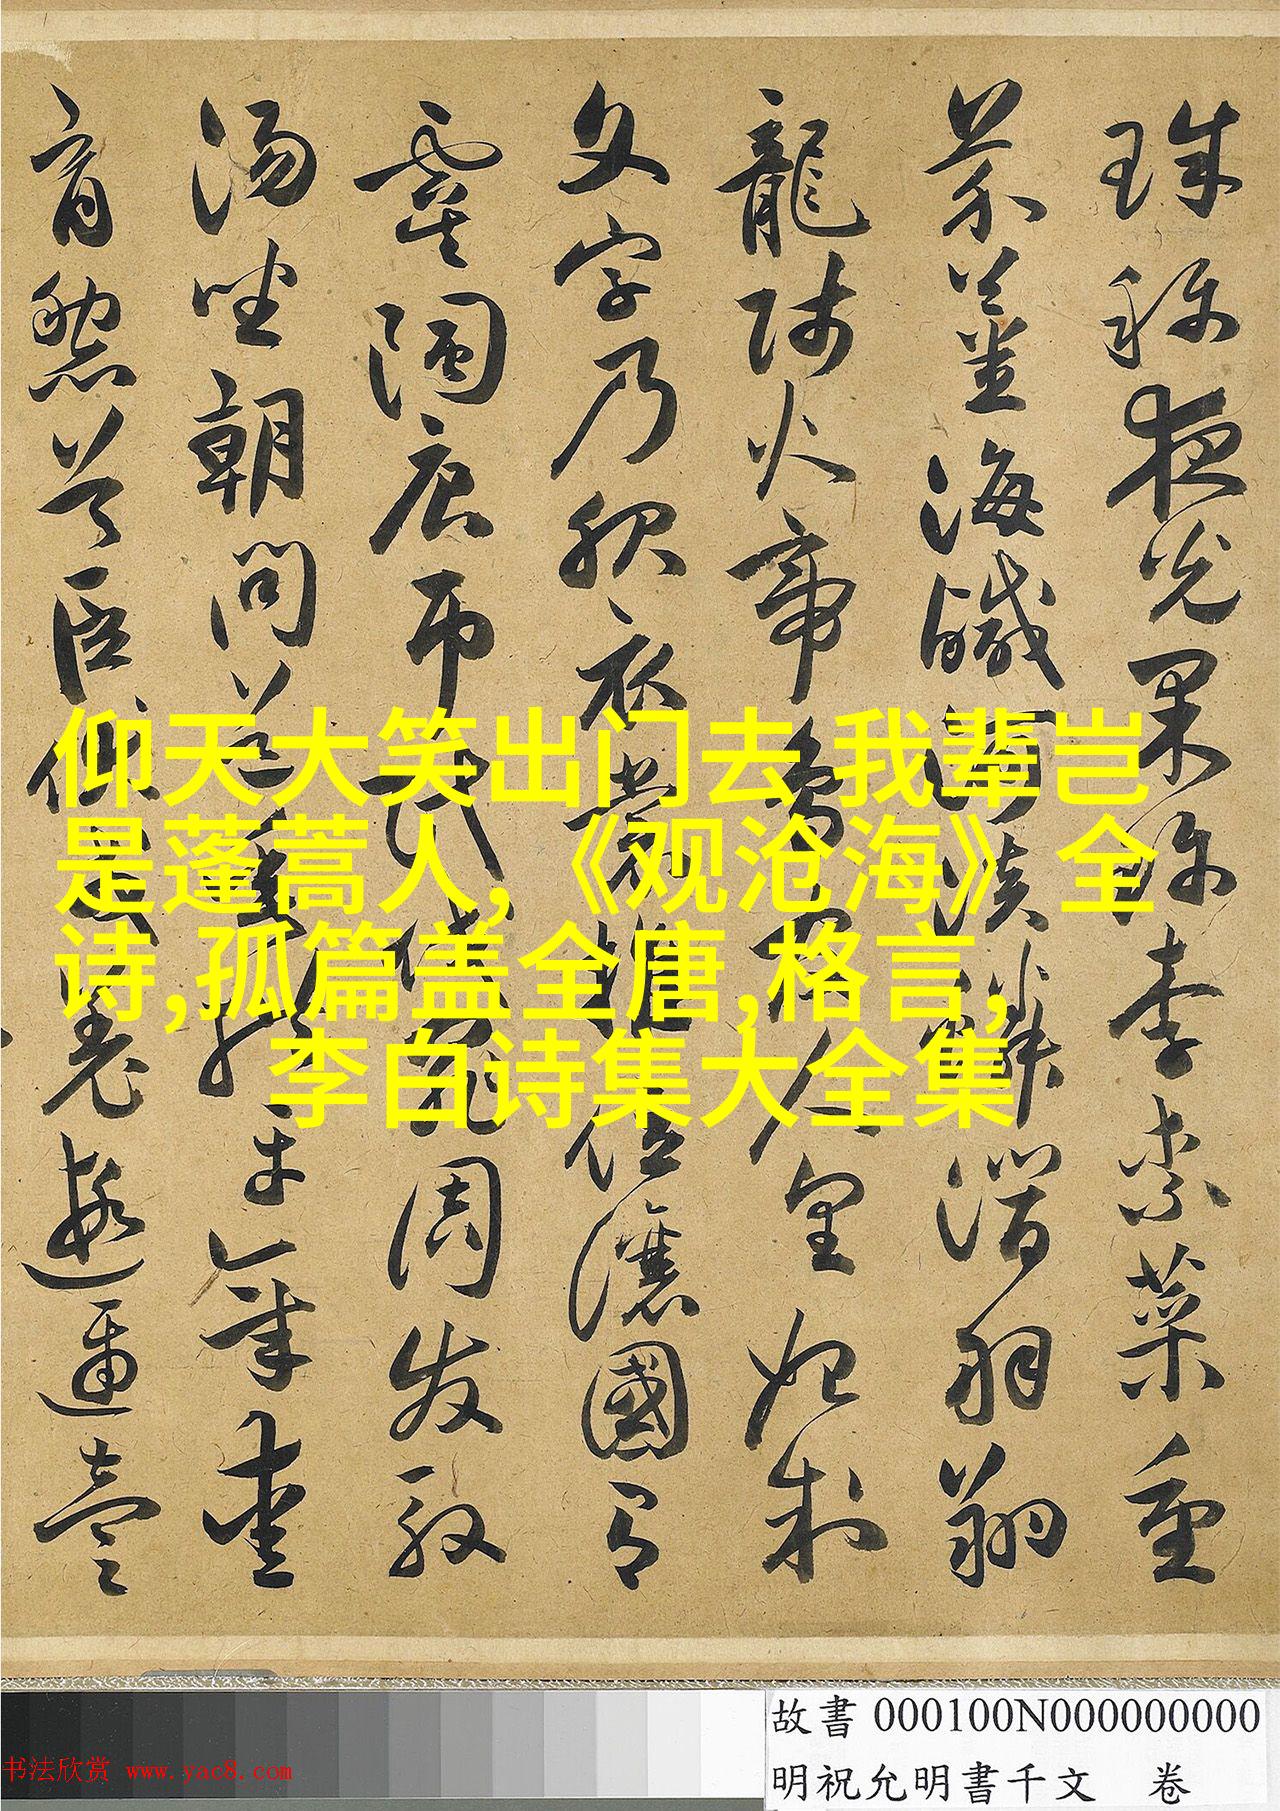 珠称夜光果珍李柰菜重
芥薑海鹹河淡鱗潛羽翔
龍師火帝鳥官人皇始制
文字乃服衣裳推位讓國有
虞陶唐弔民伐罪周发殷
湯坐朝問道垂拱平章愛
育黎首臣伏戎羌遐邇壹
仰天大笑出门去 我辈岂
是蓬蒿人,《观沧海》全
诗,孤篇盖全唐,格言,
李白诗集大全集
故書 000100N000000000
明祝允明書千文 卷
书法欣赏 www.yac8.com